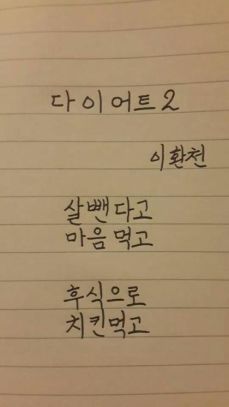 다이어트2
이환천
살뺀다고
마음먹고
후식으로
치킨먹고